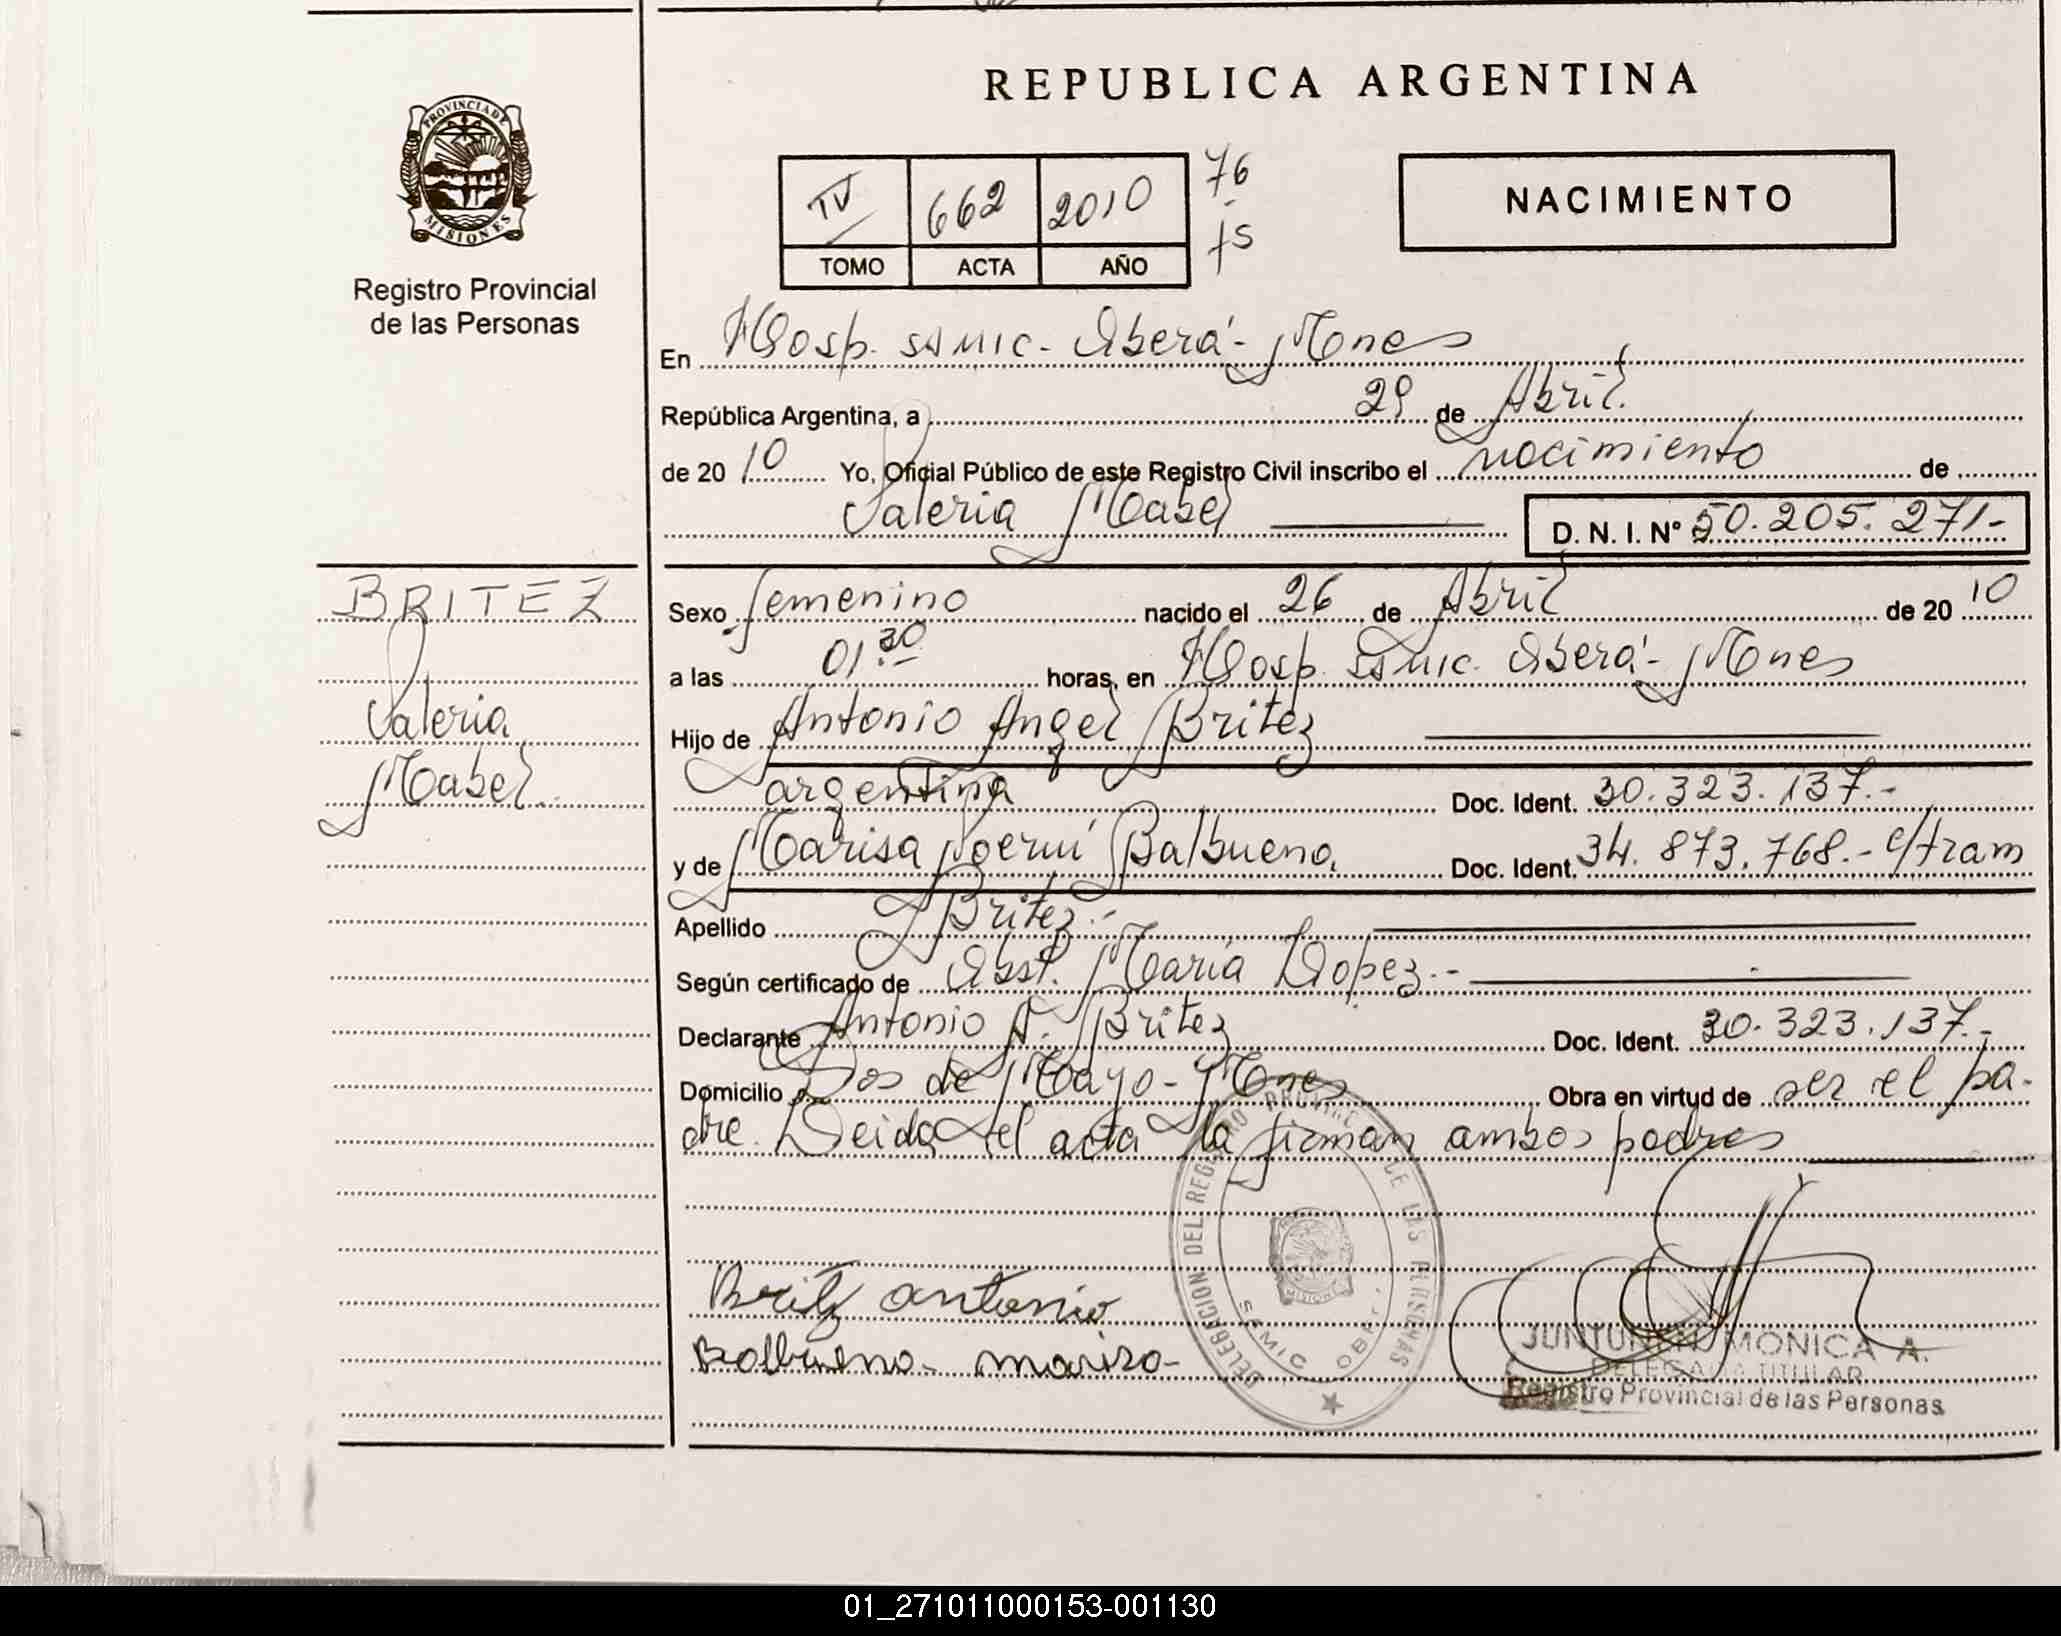 REPUBLICA ARGENTINA
PROVINCIA DE
MISIONES
Registro Provincial
de las Personas
IV 662 2010 76
fs
TOMO ACTA AÑO
NACIMIENTO
En Hosp. SAMIC - Oberá - Mnes
República Argentina, a 29 de Abril
de 2010 Yo, Oficial Público de este Registro Civil inscribo el nacimiento de
Valeria Mabel D. N. I. Nº 50.205.271.-
BRITEZ
Valeria
Mabel
Sexo femenino nacido el 26 de Abril de 2010
a las 01:30 horas, en Hosp. SAMIC. Oberá - Mnes
Hijo de Antonio Angel Britez
argentina Doc. Ident. 30.323.137.-
y de Marisa Noemí Balbuena Doc. Ident. 34.873.768.- e/tram
Apellido Britez.-
Según certificado de Obst. María Lopez.-
Declarante Antonio A. Britez Doc. Ident. 30.323.137.-
Domicilio Dos de Mayo - Mnes Obra en virtud de ser el pa-
dre. Leida el acta la firman ambos padres
DELEGACION DEL REGISTRO PROVINCIAL DE LAS PERSONAS
SAMIC OBERA
MISIONES
Britz antonio
Balbueno - mariso -
JUNTUNEN MONICA A.
DELEGADA TITULAR
Registro Provincial de las Personas
01_271011000153-001130